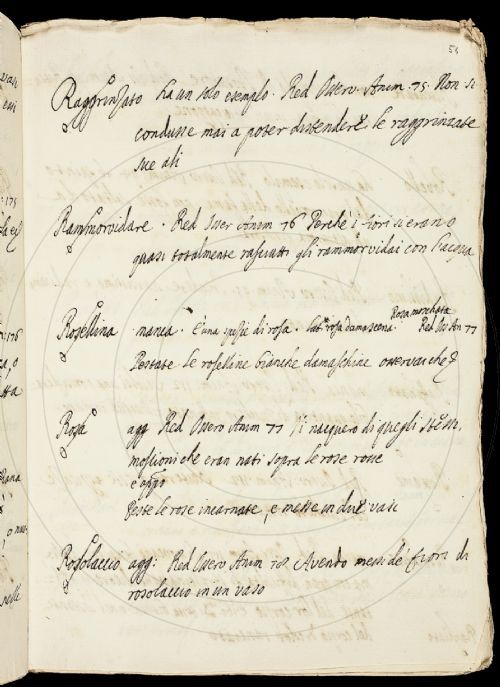 54
Raggrinzato ha un solo esempio. Red Osserv. Anim. 75. Non si
condusse mai a poter distendere le raggrinzate
sue ali
Rammorvidare. Red Osser Anim 76 Perché i fiori si erano
quasi totalmente rasciutti gli rammorvidai con l'acqua
Rosellina manca. È una spezie di rosa. lat. rosa damascena. Rosa moschata Red Os An 77
Pestate le roselline bianche damaschine osservai che
Rosa agg Red Osserv Anim 77 Si nacquero di quegli stessi
moscioni che eran nati sopra le rose rosse
e appo
Peste le rose incarnate, e messe in due vasi
Rosolaccio agg: Red Osserv Anim 78. Avendo messi de' fiori di
rosolaccio in un vaso